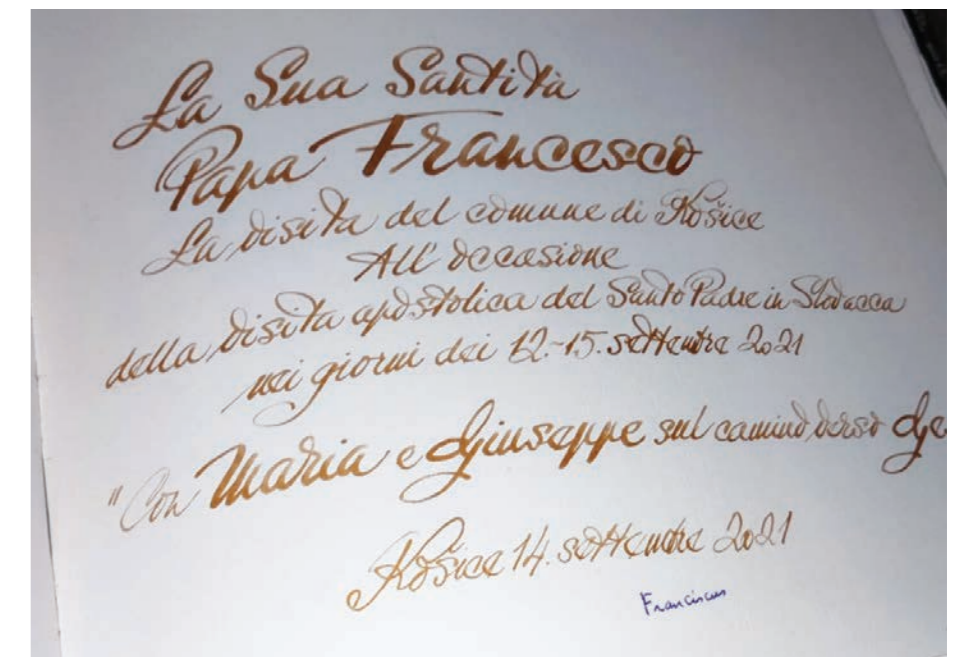 La Sua Santità
Papa Francesco
La visita del comune di Košice
All' occasione
della visita apostolica del Santo Padre in Slovacca
nei giorni dei 12.-15. settembre 2021
"Con Maria e Giuseppe sul camino verso Ge
Košice 14. settembre 2021
Franciscus